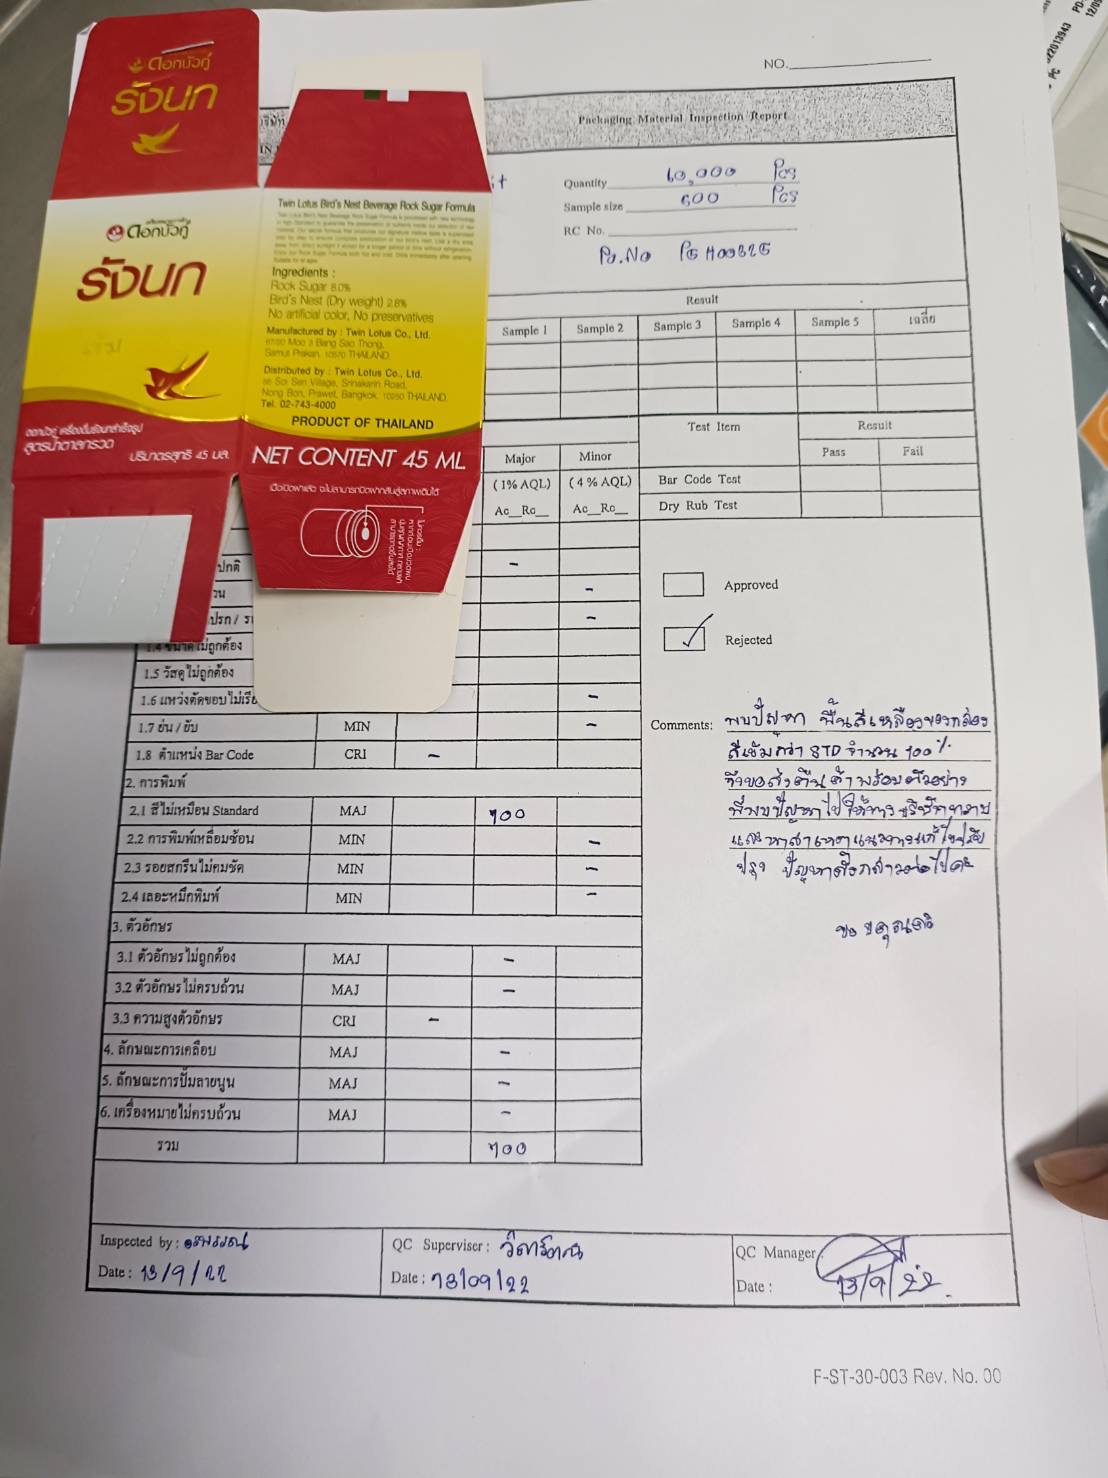 NO.
Packaging Material Inspection Report
Quantity 60,000 Pcs
Sample size 600 Pcs
RC No.
Po.No
ดอกบัวคู่
รังนก
เครื่องหมายการค้า
ดอกบัวคู่
รังนก
ดอกบัวคู่ เครื่องดื่มรังนกสำเร็จรูป
สูตรน้ำตาลกรวด
ปริมาตรสุทธิ 45 มล.
Twin Lotus Bird's Nest Beverage Rock Sugar Formula
Ingredients :
Rock Sugar 8.0%
Bird's Nest (Dry weight) 2.8%
No artificial color, No preservatives
Manufactured by : Twin Lotus Co., Ltd.
Moo 3 Bang Sao Thong,
Samut Prakan, 10570 THAILAND.
Distributed by : Twin Lotus Co., Ltd.
Soi Sen Village, Srinakarin Road,
Nong Bon, Prawet, Bangkok 10250 THAILAND.
Tel. 02-743-4000
PRODUCT OF THAILAND
NET CONTENT 45 ML
เมื่อเปิดฝาแล้ว จะไม่สามารถปิดฝากลับสู่สภาพเดิมได้
Result
Sample 1 Sample 2 Sample 3 Sample 4 Sample 5 เฉลี่ย
Test Item Result
Pass Fail
Major Minor
(1% AQL) (4% AQL) Bar Code Test
Ac__Re__ Ac__Re__ Dry Rub Test
ปกติ -
วน -
-
Approved
Rejected
1.4 ขนาดไม่ถูกต้อง
1.5 วัสดุไม่ถูกต้อง
1.6 แหว่งตัดขอบไม่เรีย -
1.7 ย่น / ยับ MIN -
1.8 ตำแหน่ง Bar Code CRI -
2. การพิมพ์
2.1 สีไม่เหมือน Standard MAJ 100
2.2 การพิมพ์เหลื่อมซ้อน MIN -
2.3 รอยสกรีนไม่คมชัด MIN -
2.4 เลอะหมึกพิมพ์ MIN -
3. ตัวอักษร
3.1 ตัวอักษรไม่ถูกต้อง MAJ -
3.2 ตัวอักษรไม่ครบถ้วน MAJ -
3.3 ความสูงตัวอักษร CRI -
4. ลักษณะการเคลือบ MAJ -
5. ลักษณะการปั๊มลายนูน MAJ -
6. เครื่องหมายไม่ครบถ้วน MAJ -
รวม 100
Comments: พบปัญหา พื้นสีเหลืองของกล่อง
สีเข้มกว่า STD จำนวน 100%
จึงขอส่งคืนค้าพร้อมตัวอย่าง
ที่พบปัญหาไปให้ทางบริษัททราบ
และหาสาเหตุแนวทางแก้ไขปรับ
ปรุง ปัญหาดังกล่าวต่อไปค่ะ
Inspected by :
Date : 13/9/22
QC Supervisor :
Date : 13/09/22
QC Manager
Date : 13/9/22
F-ST-30-003 Rev. No. 00